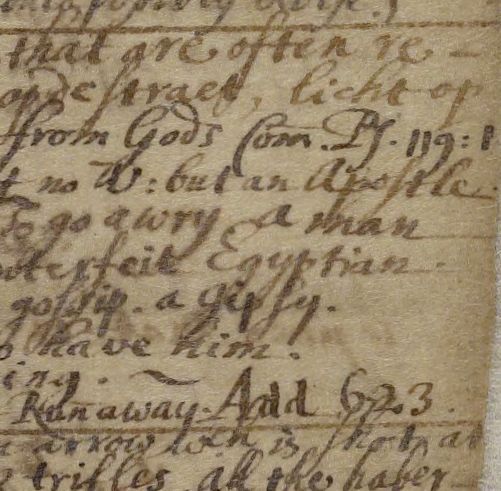 that are often re–
straet, licht op
from Gods Com̄. Ps. 119: 1
no W: but an Apostle
To go awry a man
Egyptian.
gossip. a Gipsy.
have him.
ing.
Run̄away. Add 623.
arrow wch is shot at
trifles all the haber–